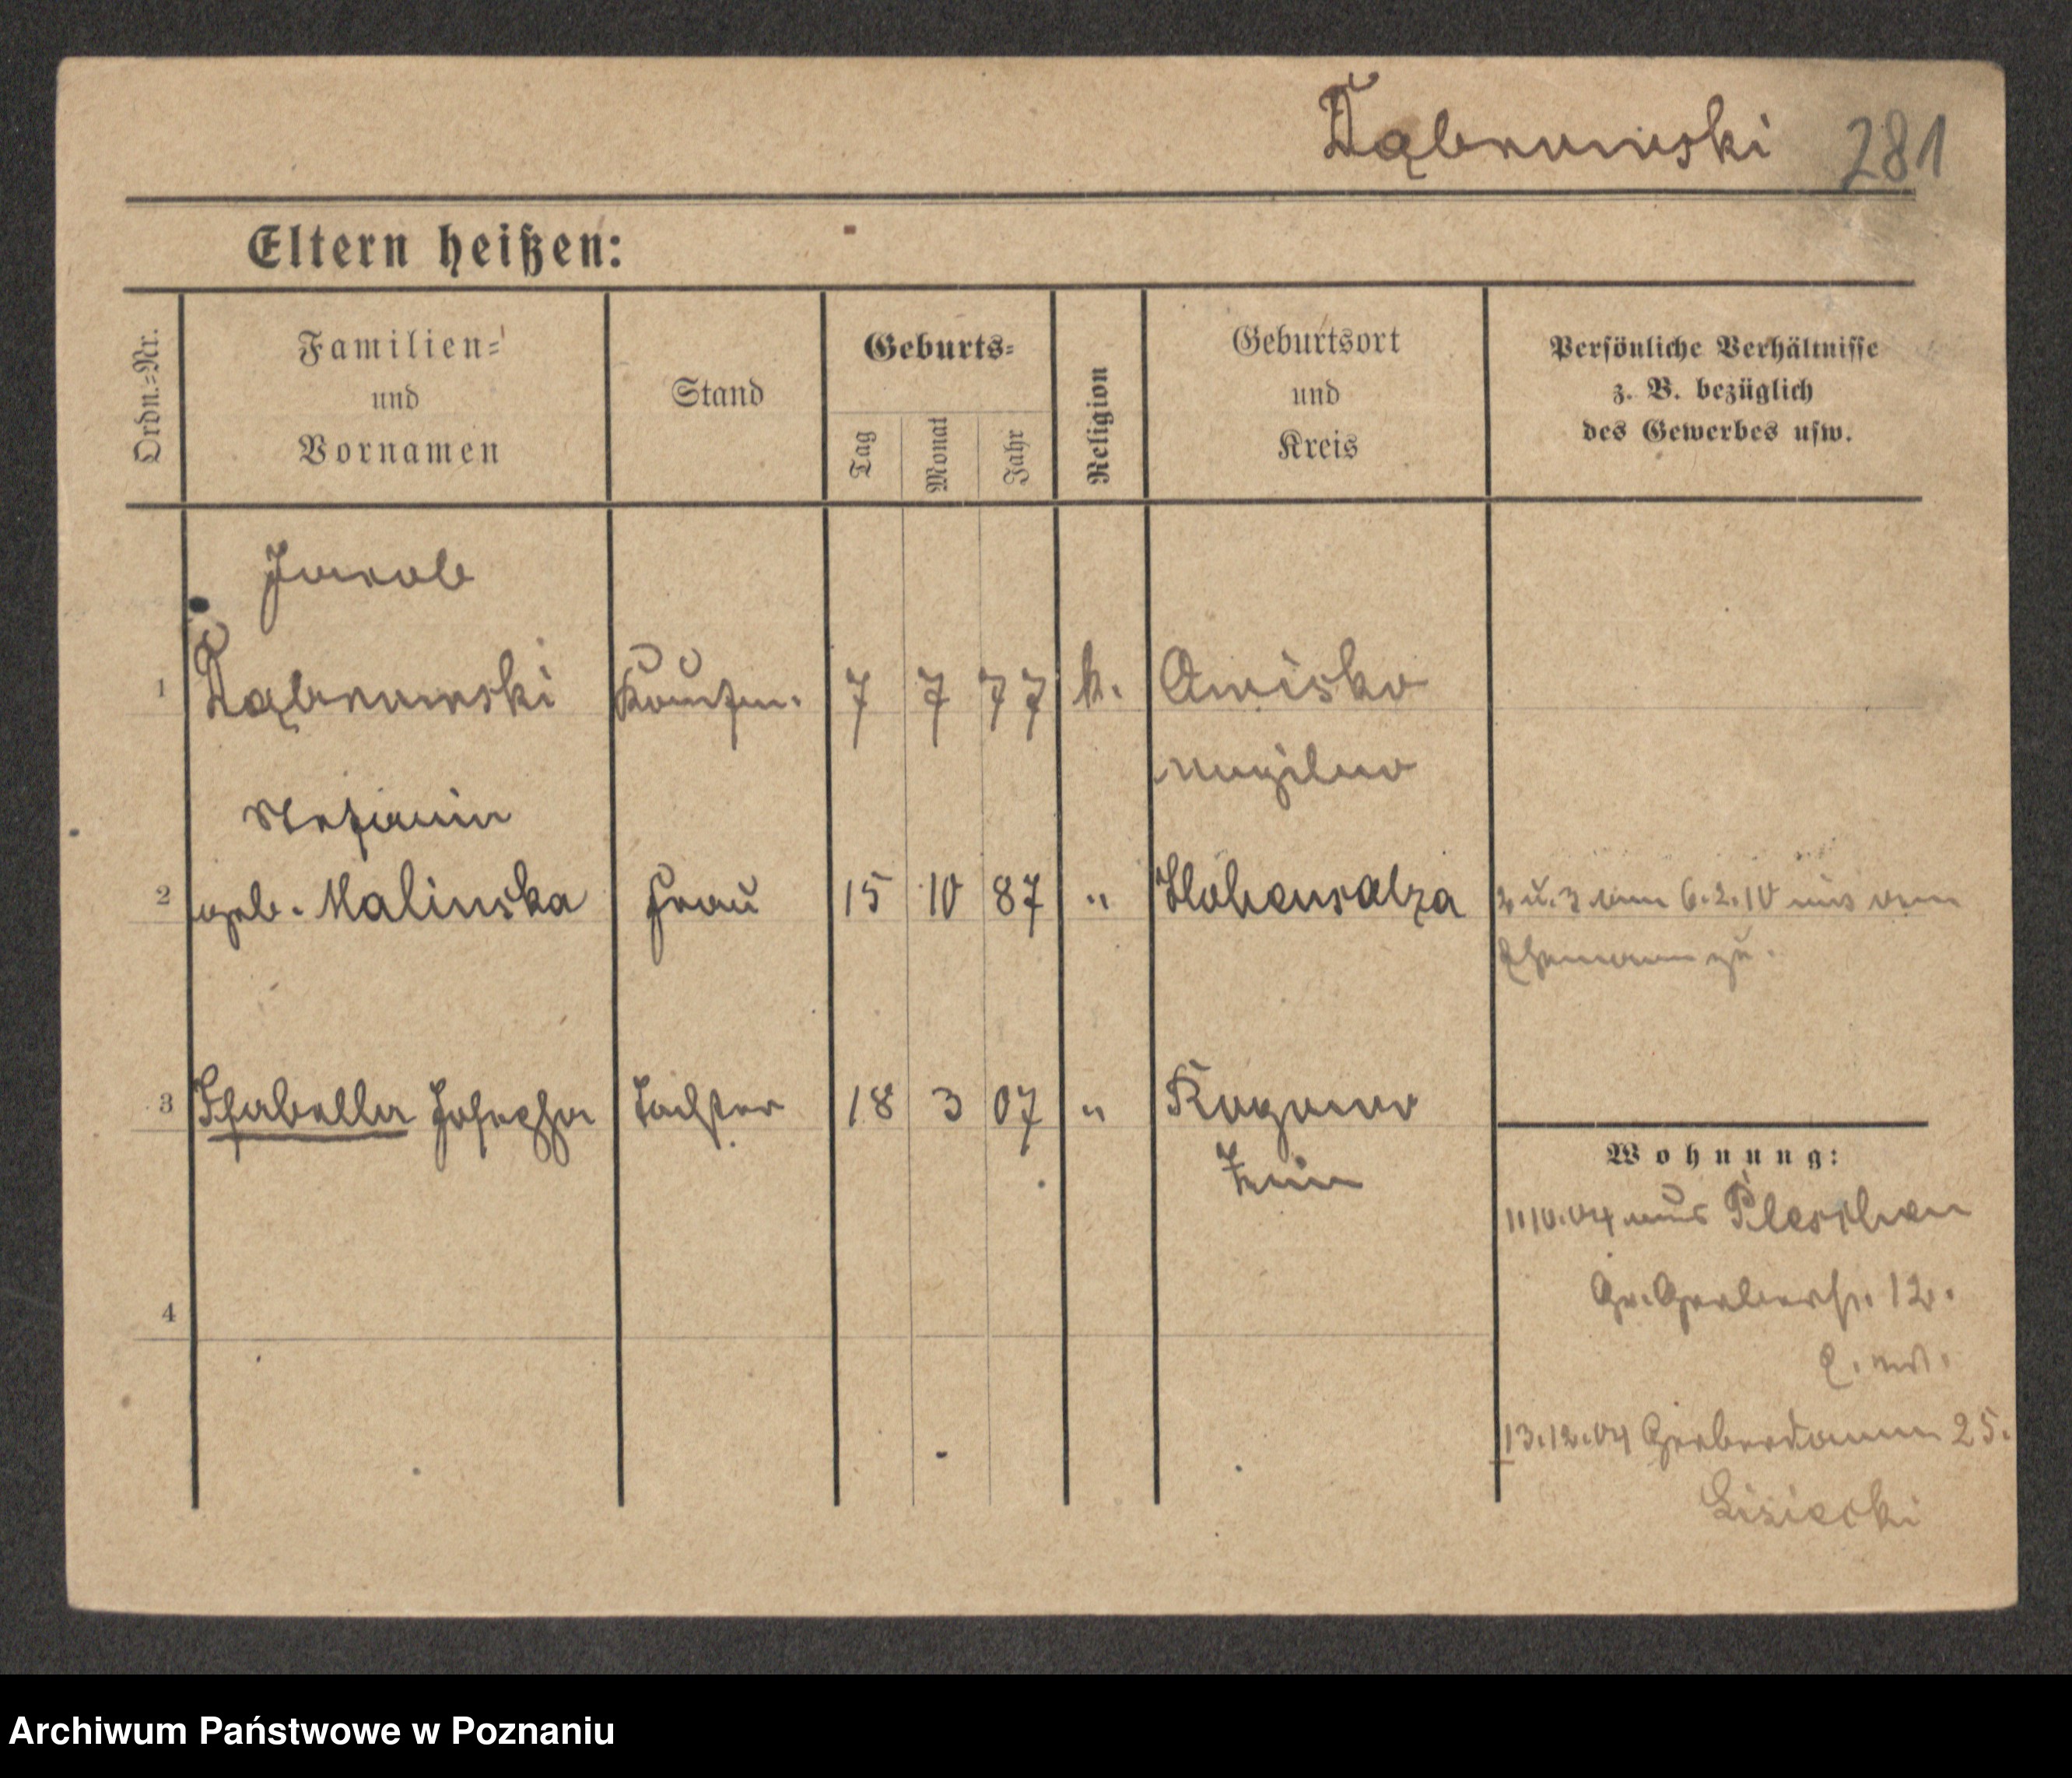 Dąbrowski 281
Eltern heißen:
Ordn.=Nr.
Familien=
und
Vornamen
Stand
Geburts=
Tag
Monat
Jahr
Religion
Geburtsort
und
Kreis
Persönliche Verhältnisse
z. B. bezüglich
des Gewerbes usw.
Jacob
1 Dąbrowski 7 7 77 k.
Mogilno
Stefania
2 geb. Malinska Frau 15 10 87 " Hohensalza 2 u. 3 am 6.2.10
Ehemann zu.
3 Isabella Josepha Tochter 18 3 07 " Rogowo
Znin
Wohnung:
1 10.04 aus Pleschen
Gr. Gerberstr. 12.
4
13.12.04 Gerberdamm 25.
Lisiecki
Archiwum Państwowe w Poznaniu